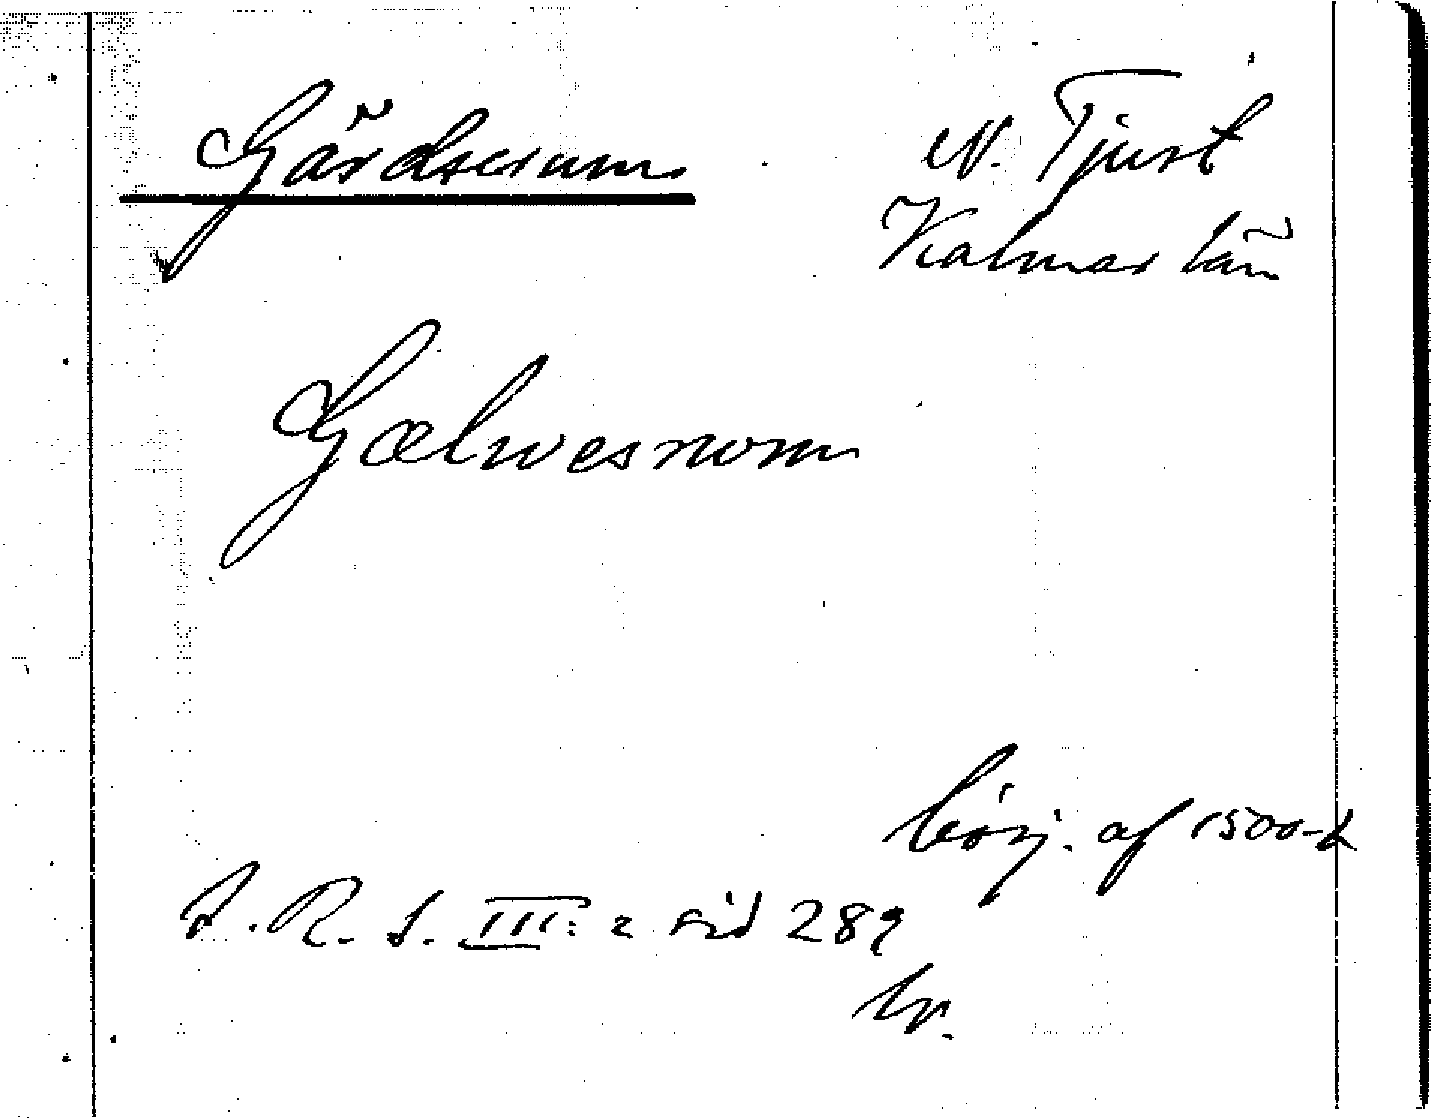 Gärdserum N. Tjust
Kalmar län
Gælwesrwm
börj. af 1500-t
S. R. S. III: 2 sid 289
br.